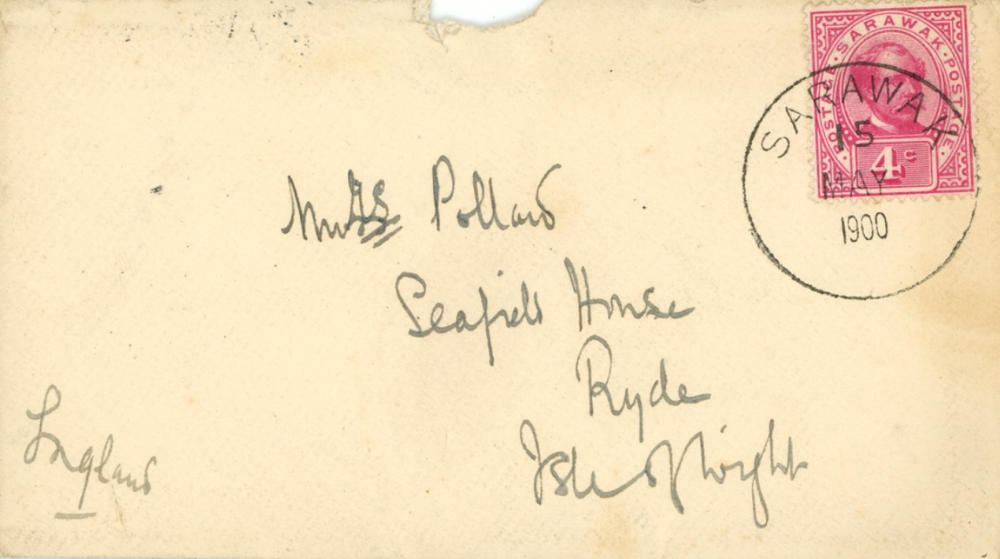 POSTAGE · SARAWAK · POSTAGE
4c
SARAWAK
15
MAY
1900
Pollard
Seafield House
Ryde
Isle of Wight
England